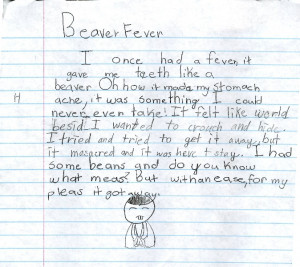 Beaver Fever
I once had a fever, it
gave me teeth like a
beaver Oh how it made my stomach
ache, it was something I could
never, ever take! It felt like world
besid! I wanted to crouch and hide.
I tried and tried to get it away, but
it and it was here t stay. I had
some beans and do you know
what meas? But with an ease, for my
pleas it got away.
H